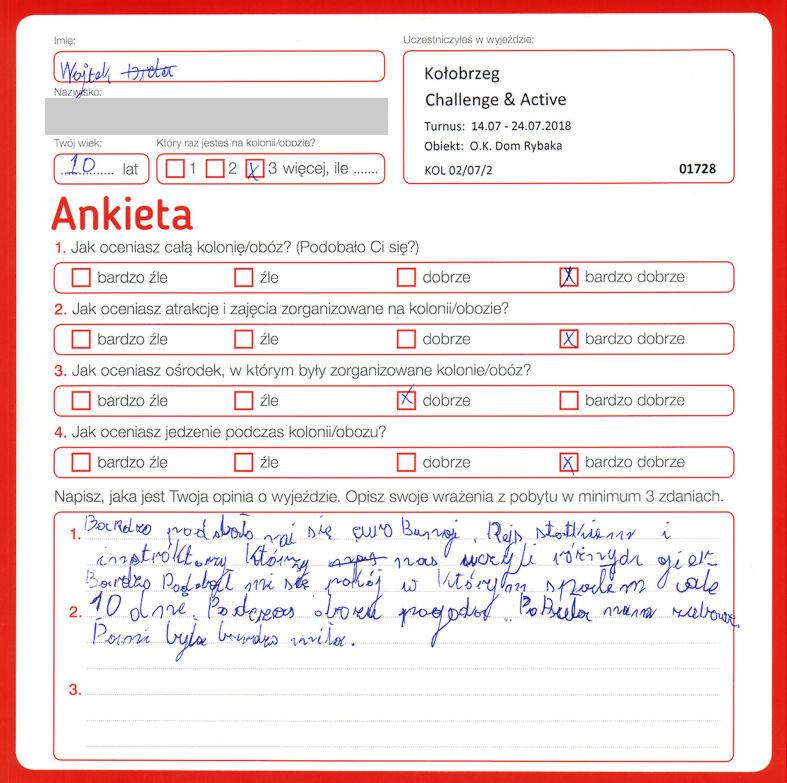 Imię:
Wojtek
Nazwisko:
Twój wiek:
10 lat
Który raz jesteś na kolonii/obozie?
1 2 3 więcej, ile .......
Uczestniczyłeś w wyjeździe:
Kołobrzeg
Challenge & Active
Turnus: 14.07 - 24.07.2018
Obiekt: O.K. Dom Rybaka
KOL 02/07/2 01728
Ankieta
1. Jak oceniasz całą kolonię/obóz? (Podobało Ci się?)
bardzo źle źle dobrze bardzo dobrze
2. Jak oceniasz atrakcje i zajęcia zorganizowane na kolonii/obozie?
bardzo źle źle dobrze bardzo dobrze
3. Jak oceniasz ośrodek, w którym były zorganizowane kolonie/obóz?
bardzo źle źle dobrze bardzo dobrze
4. Jak oceniasz jedzenie podczas kolonii/obozu?
bardzo źle źle dobrze bardzo dobrze
Napisz, jaka jest Twoja opinia o wyjeździe. Opisz swoje wrażenia z pobytu w minimum 3 zdaniach.
1. Bardzo podobało mi się euro Bungi, Rejs statkiem i
instróktorzy którzy nas uczyli różnych gier
Bardzo Podobał mi się pokój w którym spałem całe
2. 10 dni. Podczas obozu pogoda nam
Pani była bardzo miła.
3.